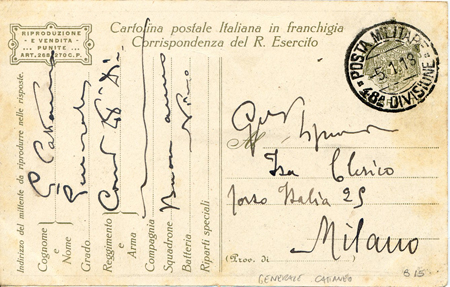 RIPRODUZIONE
E VENDITA
PUNITE
ART. 266-270 C.P.
Cartolina postale Italiana in franchigia
Corrispondenza del R. Esercito
POSTA MILITARE
5.1.18
48ª DIVISIONE
Indirizzo del mittente da riprodurre nelle risposte.
Cognome e Nome
Grado
Reggimento e Arma
Compagnia
Squadrone
Batteria
Riparti speciali
G. Cattaneo
Generale
Com 48ª Div
Buon anno
A
Isa Clerico
corso Italia 25
Milano
(Prov. di
GENERALE CATANEO
B 15